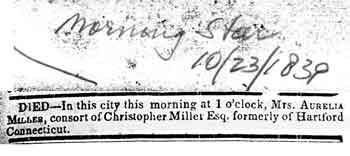 Morning Star
10/23/1839
DIED—In this city this morning at 1 o'clock, MRS. AURELIA
MILLER, consort of Christopher Miller Esq. formerly of Hartford
Connecticut.